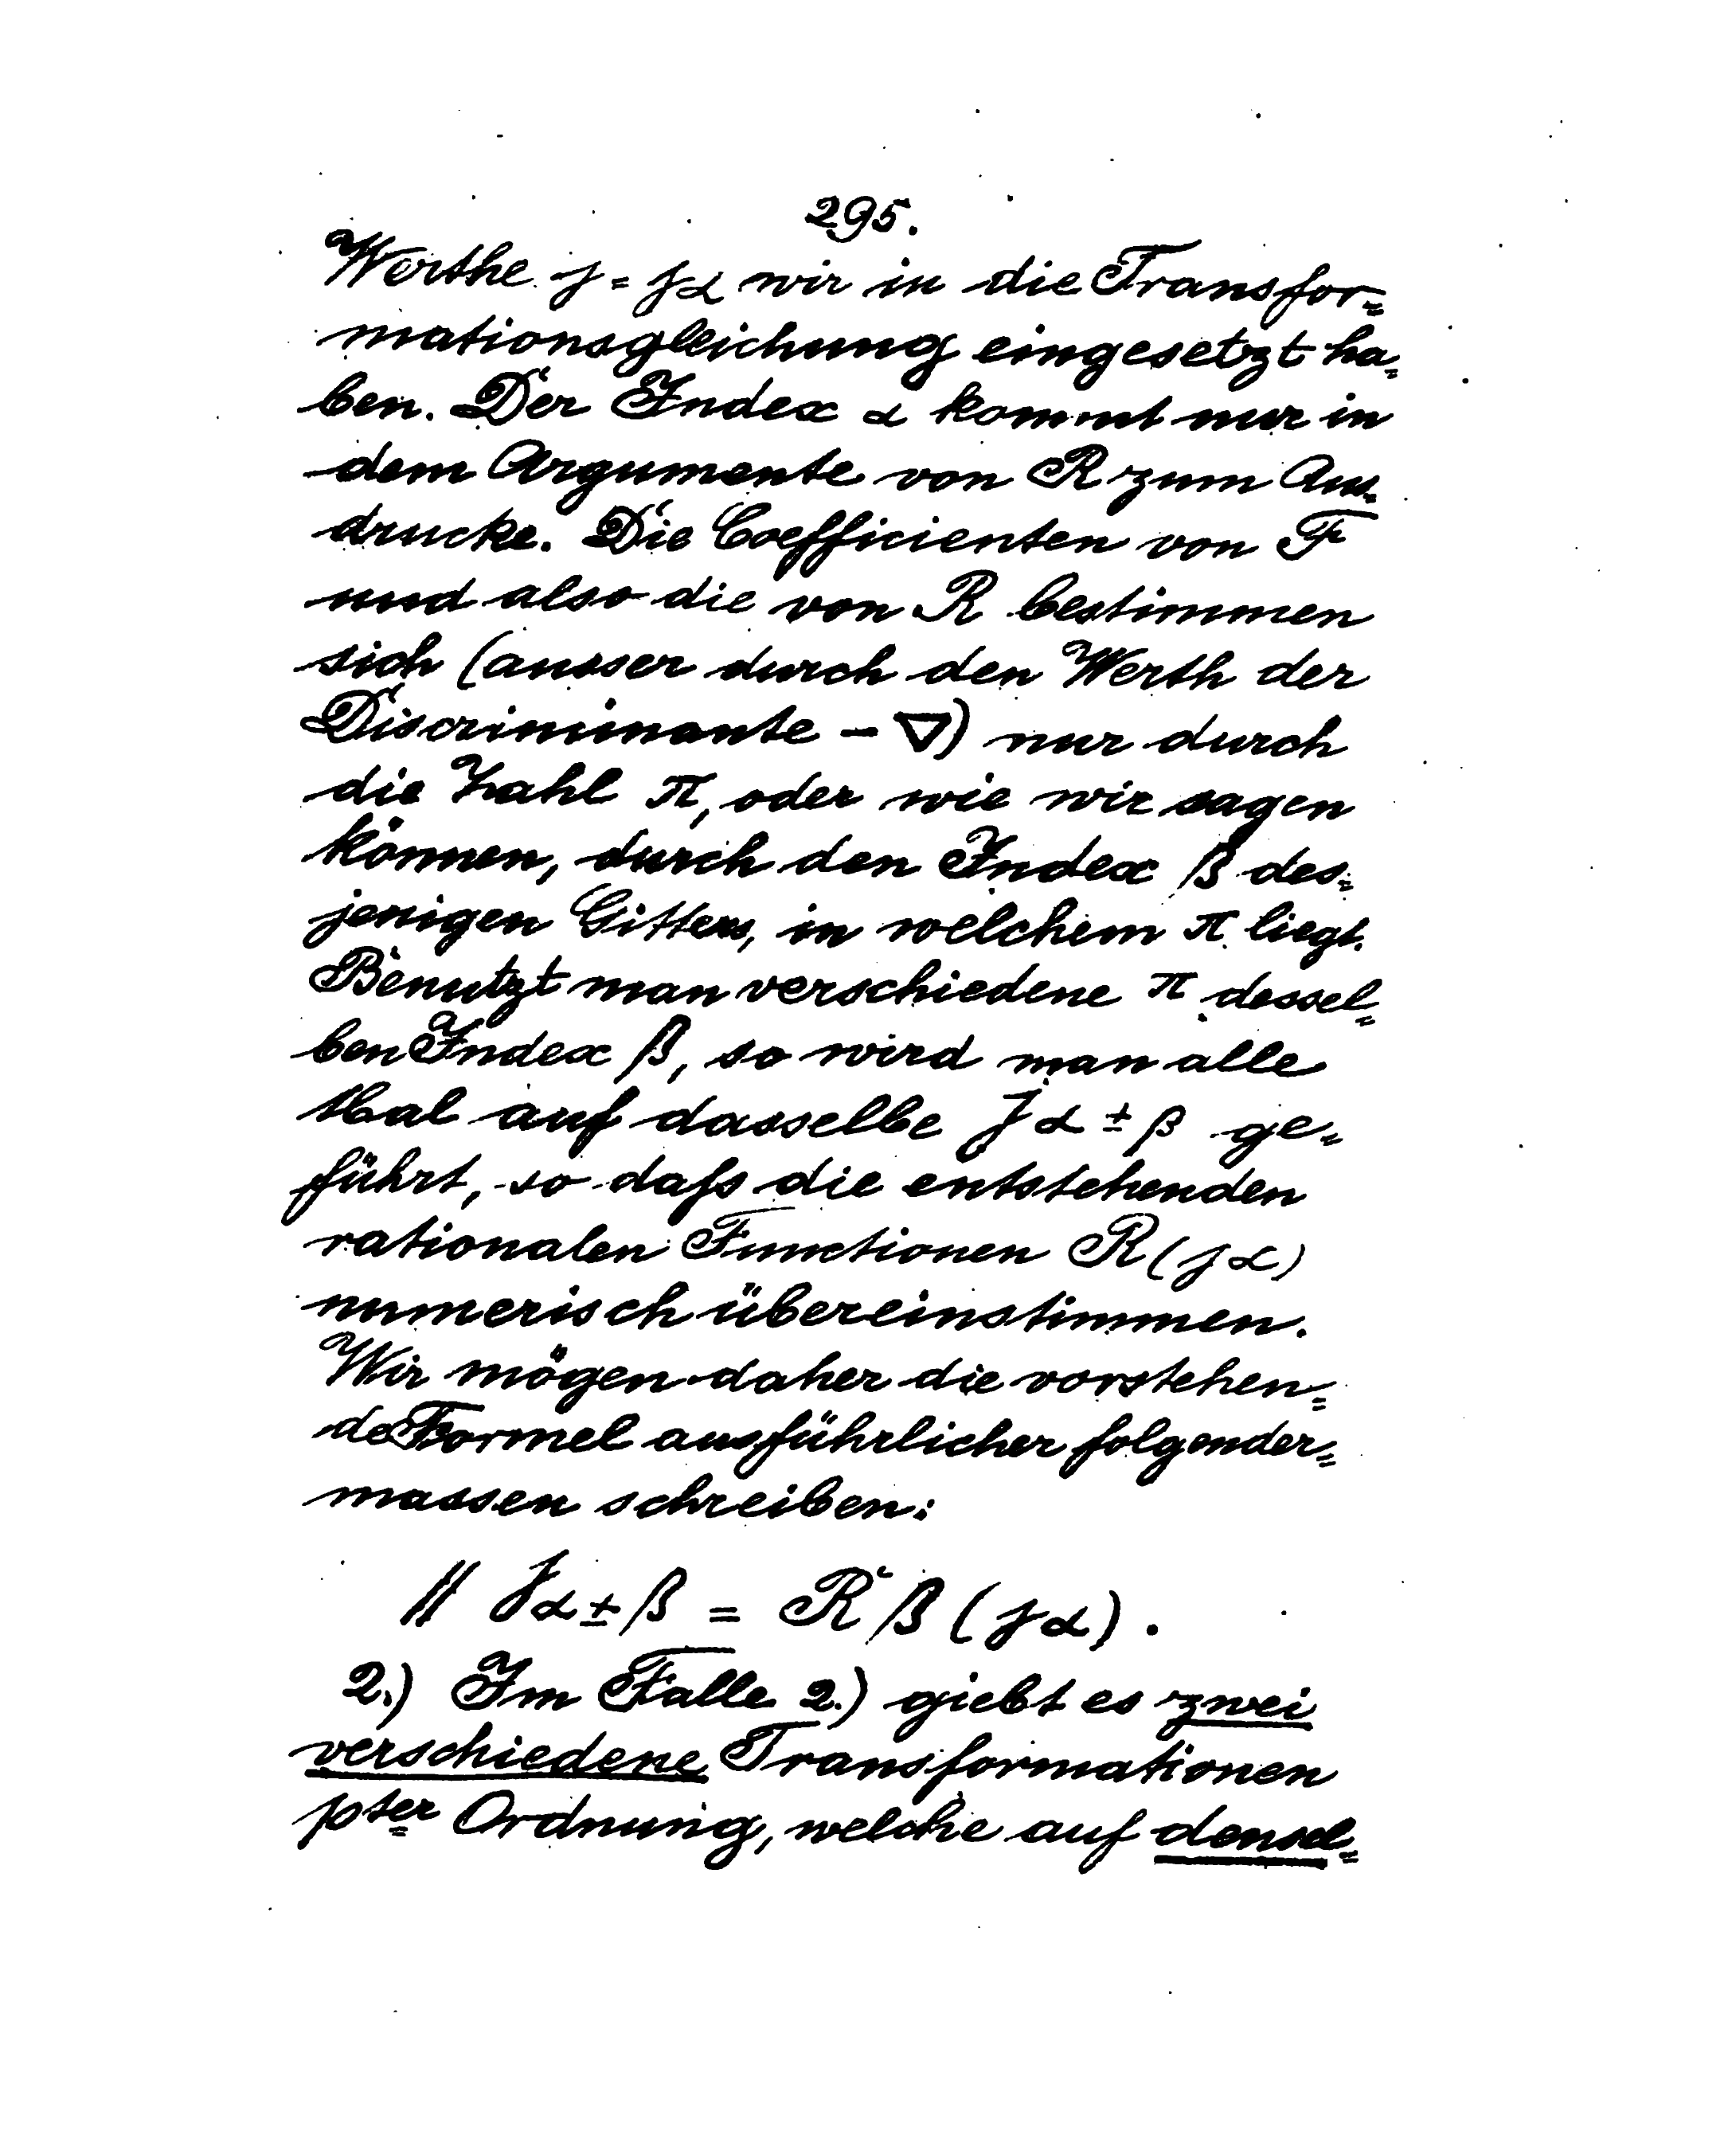 295.
Werthe j = jα wir in die Transfor=
mationsgleichung eingesetzt ha=
ben. Der Index α kommt nur in
dem Argumente von R zum Aus=
drucke. Die Coefficienten von F
und also die von R bestimmen
sich (ausser durch den Werth der
Discriminante - ∇) nur durch
die Zahl π, oder wie wir sagen
können, durch den Index β des=
jenigen Gitters, in welchem π liegt.
Benutzt man verschiedene π dessel=
ben Index β, so wird man alle
Mal auf dasselbe jα ± β ge=
führt, so daſs die entstehenden
rationalen Functionen R (jα)
numerisch übereinstimmen.
Wir mögen daher die vorstehen=
de Formel ausführlicher folgender=
massen schreiben:
// jα ± β = Rβ (jα).
2.) Im Falle 2.) giebt es zwei
verschiedene Transformationen
pter Ordnung, welche auf densel=